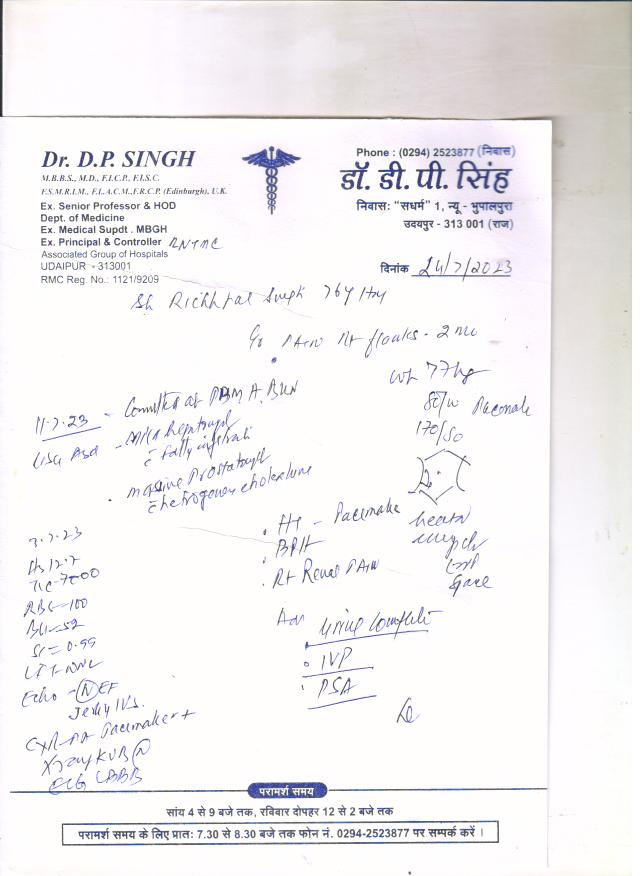 Dr. D.P. SINGH
M.B.B.S., M.D., F.I.C.P., F.I.S.C.
F.S.M.R.I.M., F.I.A.C.M., F.R.C.P. (Edinburgh), U.K.
Ex. Senior Professor & HOD
Dept. of Medicine
Ex. Medical Supdt . MBGH
Ex. Principal & Controller RNTMC
Associated Group of Hospitals
UDAIPUR - 313001
RMC Reg. No.: 1121/9209
Phone : (0294) 2523877 (निवास)
डॉ. डी. पी. सिंह
निवास: "सधर्म" 1, न्यू - भुपालपुरा
उदयपुर - 313 001 (राज)
दिनांक 24/7/2023
Sh Richhpal Singh 76y
Pain Rt flanks - 2 mo
Wt 77kg
80/m Pacemake
170/80
11-7-23 - Consulted at PBM A.
USG Abd - Mild hepatomegl
c fatty infiltrati
massive Prostatomegl
3-7-23
Hb 12.7
TLC-7000
RBS-100
BU-52
SC = 0.99
LFT-WNL
Echo - N EF
Jerky IVS.
CXR-PA Pacemaker +
Xray KUB N
ECG LBBB
Pacemake
BPH
Rt Renal Pain
Adv Urine Complete
IVP
PSA
परामर्श समय
सांय 4 से 9 बजे तक, रविवार दोपहर 12 से 2 बजे तक
परामर्श समय के लिए प्रातः 7.30 से 8.30 बजे तक फोन नं. 0294-2523877 पर सम्पर्क करें ।